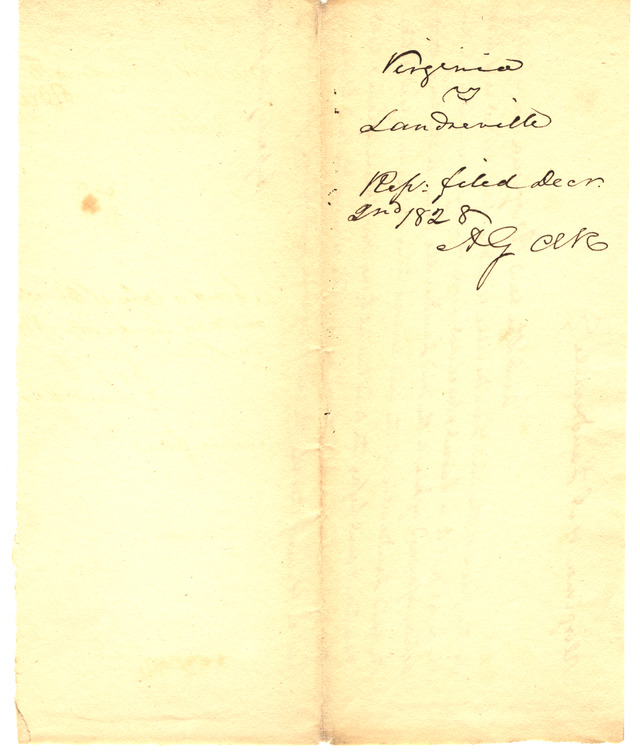 Virginia
vs
Landreville
Rep: filed Decr.
2nd 1828
AG Clk